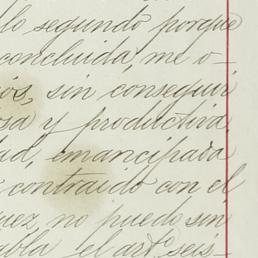 lo segundo porque
concluida, me o-
ios, sin conseguir
sa y productiva
dad, emancipada
contraido con el
uez, no puedo sin
abla el artº seis-